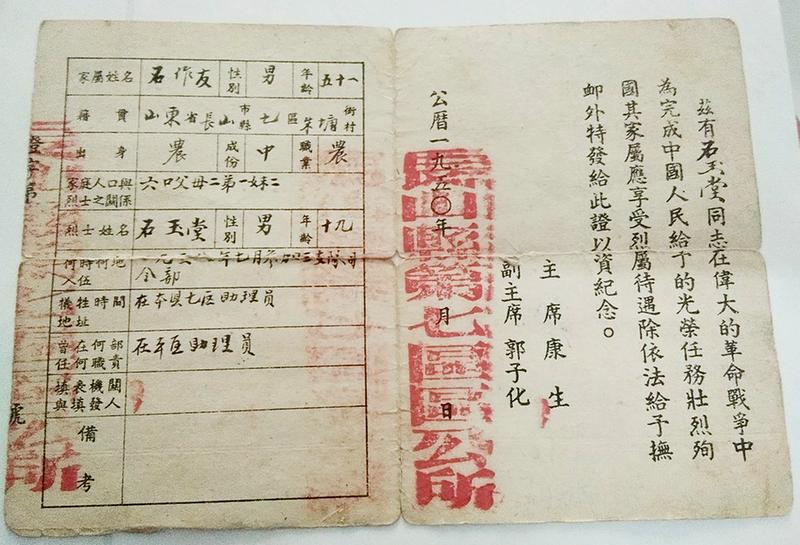 茲有石玉堂同志在偉大的革命戰爭中
為完成中國人民給予的光榮任務壯烈殉
國其家屬應享受烈屬待遇除依法給予撫
卹外特發給此證以資紀念。
主席康生
副主席郭子化
公曆一九五〇年 月 日
長山縣第七區區公所
家屬姓名 石作友 性別 男 年齡 五十一
籍貫 山東省長山市縣七區 街村
出身 農 成份 中 職業 農
家庭人口與烈士之關係 六口父母二弟一妹二
烈士姓名 石玉堂 性別 男 年齡 十九
何時何地入伍 一九三八年七月 三支隊司令部
犧牲時間地址 在本县七区助理員
曾在何部任何職 在本区助理員
填表機關與填發人
備考
證字第 號
公所